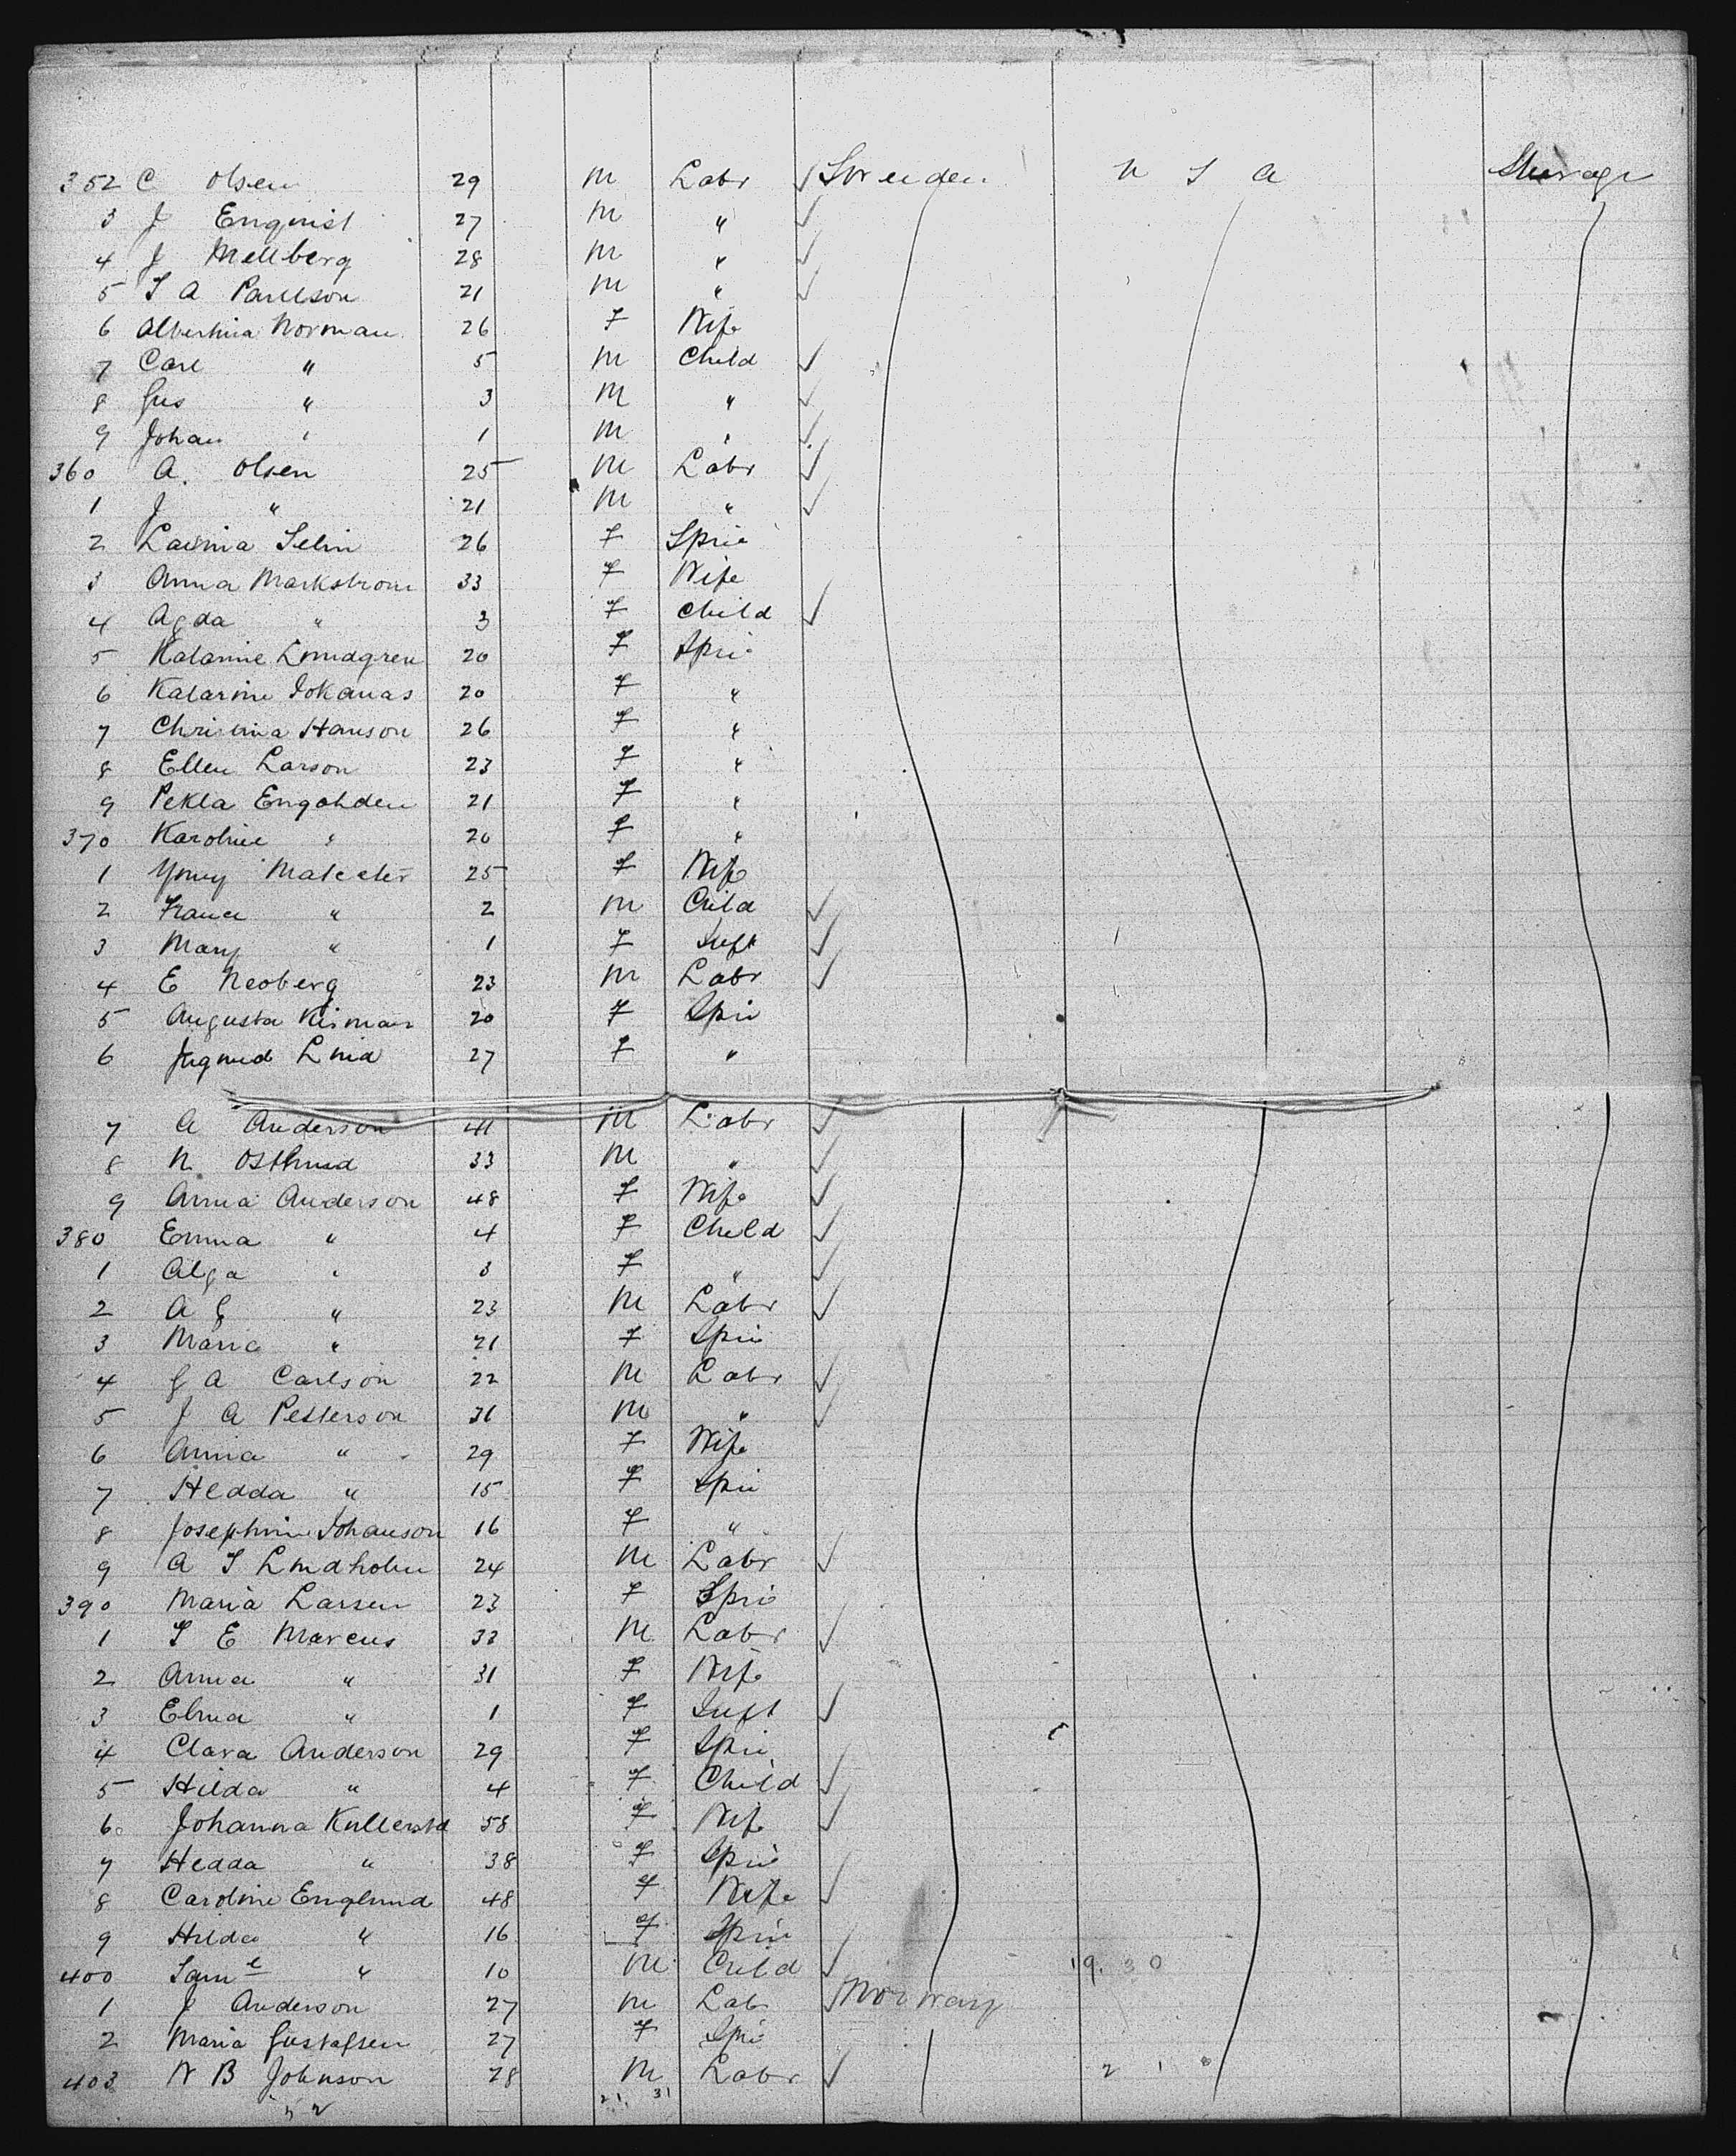 352 C Olsen 29 M Labr ✓ Sweden U S A Steerage
3 J Enquist 27 M " ✓
4 J Mellberg 28 M " ✓
5 S A Paulson 21 M " ✓
6 Albertina Norman 26 F Wife
7 Carl " 5 M Child ✓
8 Gus " 3 M " ✓
9 Johan " 1 M " ✓
360 A. Olsen 25 M Labr ✓
1 J " 21 M " ✓
2 Selin 26 F Spin
3 Anna Markstrom 33 F Wife
4 Agda " 3 F Child ✓
5 Lundgren 20 F Spin
6 Katarine 20 F "
7 Christina Hanson 26 F "
8 Ellen Larson 23 F "
9 21 F "
370 Karoline " 20 F "
1 25 F Wife
2 " 2 M Child ✓
3 Mary " 1 F Inft ✓
4 E Neoberg 23 M Labr ✓
5 Augusta 20 F Spin
6 Lind 27 F "
7 A Anderson 41 M Labr ✓
8 N Ostlund 33 M " ✓
9 Anna Anderson 48 F Wife ✓
380 Emma " 4 F Child ✓
1 Alga " 3 F " ✓
2 A G " 23 M Labr ✓
3 Maria " 21 F Spin
4 G A Carlson 22 M Labr ✓
5 J A Petterson 31 M " ✓
6 Anna " 29 F Wife
7 Hedda " 15 F Spin
8 Josephine Johanson 16 F "
9 A S Lindholm 24 M Labr ✓
390 Maria Larsen 23 F Spin
1 S E Marcus 33 M Labr ✓
2 Anna " 31 F Wife
3 " 1 F Inft ✓
4 Clara Anderson 29 F Spin
5 Hilda " 4 F Child ✓
6 Johanna 58 F Wife ✓
7 Hedda " 38 F Spin
8 Caroline Englund 48 F Wife ✓
9 Hilda " 16 F Spin
400 Saml " 10 M Child ✓ 19. 30
1 J Anderson 27 M Lab ✓ Norway
2 Maria Gustafsen 27 F Spin
403 N B Johnson 28 M Labr ✓
21. 31
52